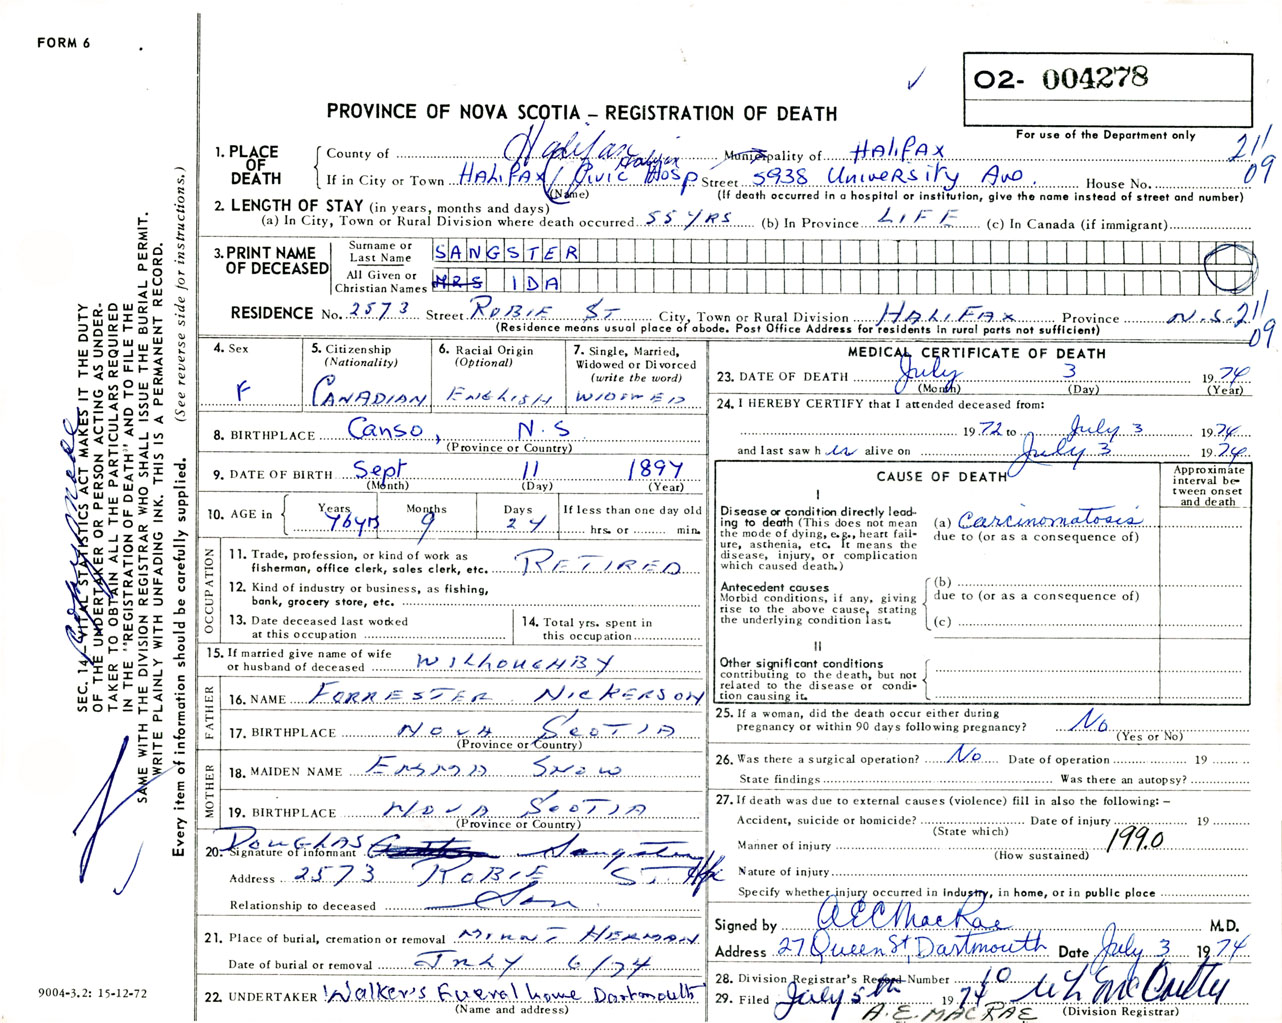 FORM 6
O2- 004278
PROVINCE OF NOVA SCOTIA – REGISTRATION OF DEATH
For use of the Department only
1. PLACE OF DEATH
County of Halifax Municipality of HALIFAX
21/09
If in City or Town HALIFAX Civic Hosp Street 5938 University Ave House No.
(Name) (If death occurred in a hospital or institution, give the name instead of street and number)
2. LENGTH OF STAY (in years, months and days)
(a) In City, Town or Rural Division where death occurred 55 YRS (b) In Province LIFE (c) In Canada (if immigrant)
3. PRINT NAME OF DECEASED
Surname or Last Name SANGSTER
All Given or Christian Names MRS IDA
RESIDENCE No. 2573 Street ROBIE ST City, Town or Rural Division HALIFAX Province N.S. 21/09
(Residence means usual place of abode. Post Office Address for residents in rural parts not sufficient)
4. Sex
F
5. Citizenship
(Nationality)
CANADIAN
6. Racial Origin
(Optional)
ENGLISH
7. Single, Married,
Widowed or Divorced
(write the word)
WIDOWED
8. BIRTHPLACE Canso, N.S.
(Province or Country)
9. DATE OF BIRTH Sept 11 1897
(Month) (Day) (Year)
10. AGE in
Years Months Days If less than one day old
76 yrs 9 24 hrs. or min.
OCCUPATION
11. Trade, profession, or kind of work as
fisherman, office clerk, sales clerk, etc. RETIRED
12. Kind of industry or business, as fishing,
bank, grocery store, etc.
13. Date deceased last worked
at this occupation
14. Total yrs. spent in
this occupation
15. If married give name of wife
or husband of deceased WILLOUGHBY
FATHER
16. NAME FORRESTER NICKERSON
17. BIRTHPLACE NOVA SCOTIA
(Province or Country)
MOTHER
18. MAIDEN NAME EMMA SNOW
19. BIRTHPLACE NOVA SCOTIA
(Province or Country)
20. Signature of informant DOUGLAS Sangster
Address 2573 ROBIE ST Hfx
Relationship to deceased Son
21. Place of burial, cremation or removal MOUNT HERMAN
Date of burial or removal JULY 6/74
22. UNDERTAKER Walker's Funeral home Dartmouth
(Name and address)
MEDICAL CERTIFICATE OF DEATH
23. DATE OF DEATH July 3 1974
(Month) (Day) (Year)
24. I HEREBY CERTIFY that I attended deceased from:
1972 to July 3 1974
and last saw her alive on July 3 1974
CAUSE OF DEATH
Approximate
interval be-
tween onset
and death
I
Disease or condition directly lead-
ing to death (This does not mean
the mode of dying, e.g., heart fail-
ure, asthenia, etc. It means the
disease, injury, or complication
which caused death.)
(a) Carcinomatosis
due to (or as a consequence of)
Antecedent causes
Morbid conditions, if any, giving
rise to the above cause, stating
the underlying condition last.
(b)
due to (or as a consequence of)
(c)
II
Other significant conditions
contributing to the death, but not
related to the disease or condi-
tion causing it.
25. If a woman, did the death occur either during
pregnancy or within 90 days following pregnancy? No
(Yes or No)
26. Was there a surgical operation? No Date of operation 19
State findings Was there an autopsy?
27. If death was due to external causes (violence) fill in also the following: –
Accident, suicide or homicide? Date of injury 19
(State which)
Manner of injury 199.0
(How sustained)
Nature of injury
Specify whether injury occurred in industry, in home, or in public place
Signed by A E C MacRae M.D.
Address 27 Queen St, Dartmouth Date July 3 1974
28. Division Registrar's Record Number 10
29. Filed July 5th 1974
(Division Registrar)
A.E. MACRAE
SEC. 14 – VITAL STATISTICS ACT MAKES IT THE DUTY
OF THE UNDERTAKER OR PERSON ACTING AS UNDER-
TAKER TO OBTAIN ALL THE PARTICULARS REQUIRED
IN THE "REGISTRATION OF DEATH" AND TO FILE THE
SAME WITH THE DIVISION REGISTRAR WHO SHALL ISSUE THE BURIAL PERMIT.
WRITE PLAINLY WITH UNFADING INK. THIS IS A PERMANENT RECORD.
Every item of information should be carefully supplied. (See reverse side for instructions.)
9004-3.2: 15-12-72